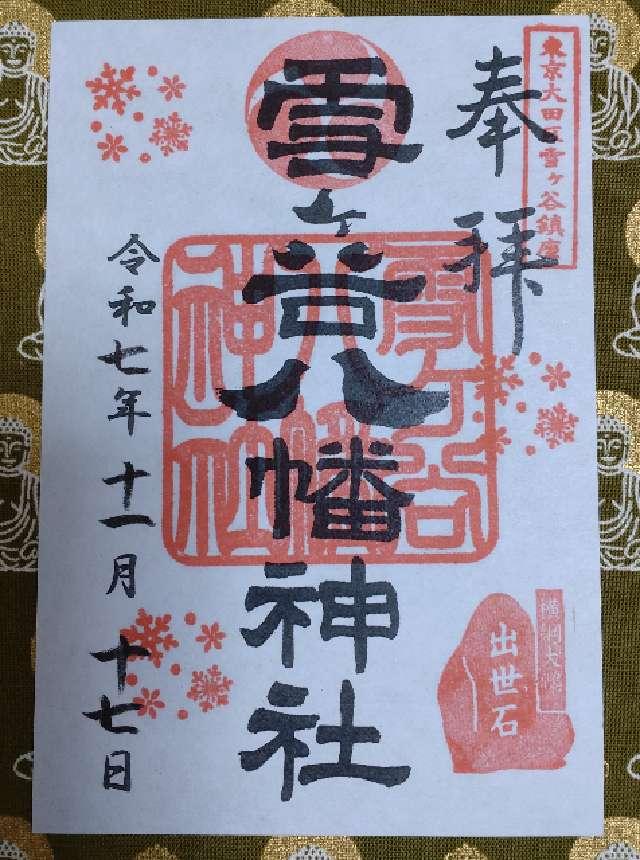 奉拝
東京大田区雪ヶ谷鎮座
雪ヶ谷八幡神社
雪ヶ谷
八幡
神社
横綱大鵬
出世石
令和七年十一月十七日